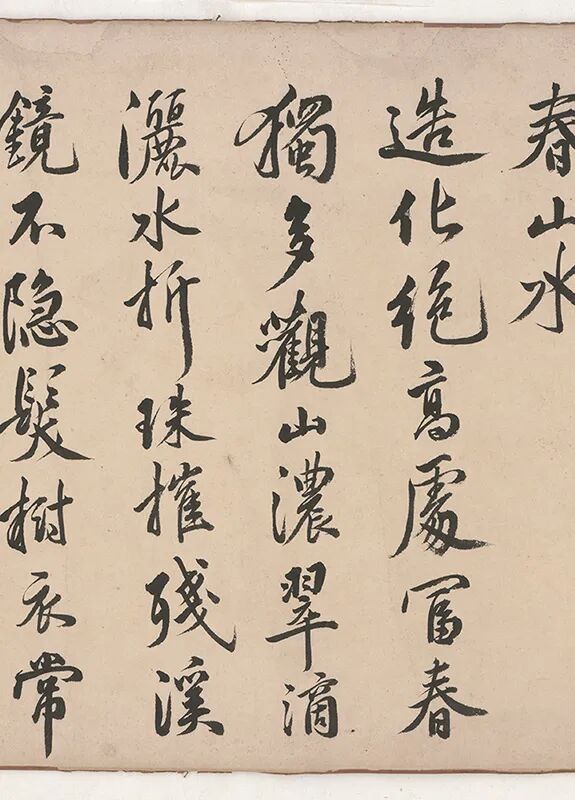 春山水
造化絶高處冨春
獨多觀山濃翠滴
灑水折珠摧残溪
鏡不隐髮樹衣常